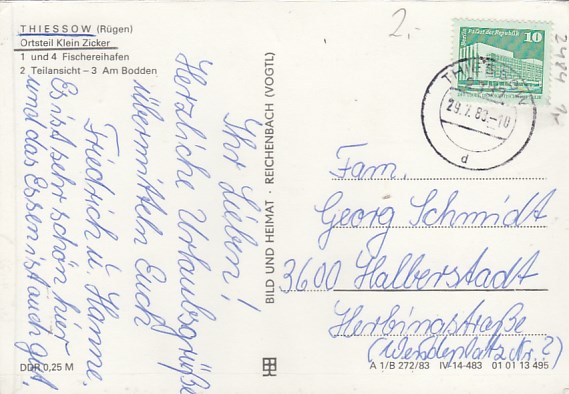 THIESSOW (Rügen)
Ortsteil Klein Zicker
1 und 4 Fischereihafen
2 Teilansicht – 3 Am Bodden
Ihr Lieben!
Herzliche Urlaubsgrüße
übermitteln Euch
Friedrich u. Hanne.
Es ist sehr schön hier
und das Essen ist auch gut.
DDR 0,25 M
BILD UND HEIMAT · REICHENBACH (VOGTL)
2.-
Palast der Republik
10
THIESSOW
29.7.83.-10
d
Fam.
Georg Schmidt
3600 Halberstadt
Herbingstraße
(Wendeplatz Nr. 2)
A 1/B 272/83 IV-14-483 01 01 13 495